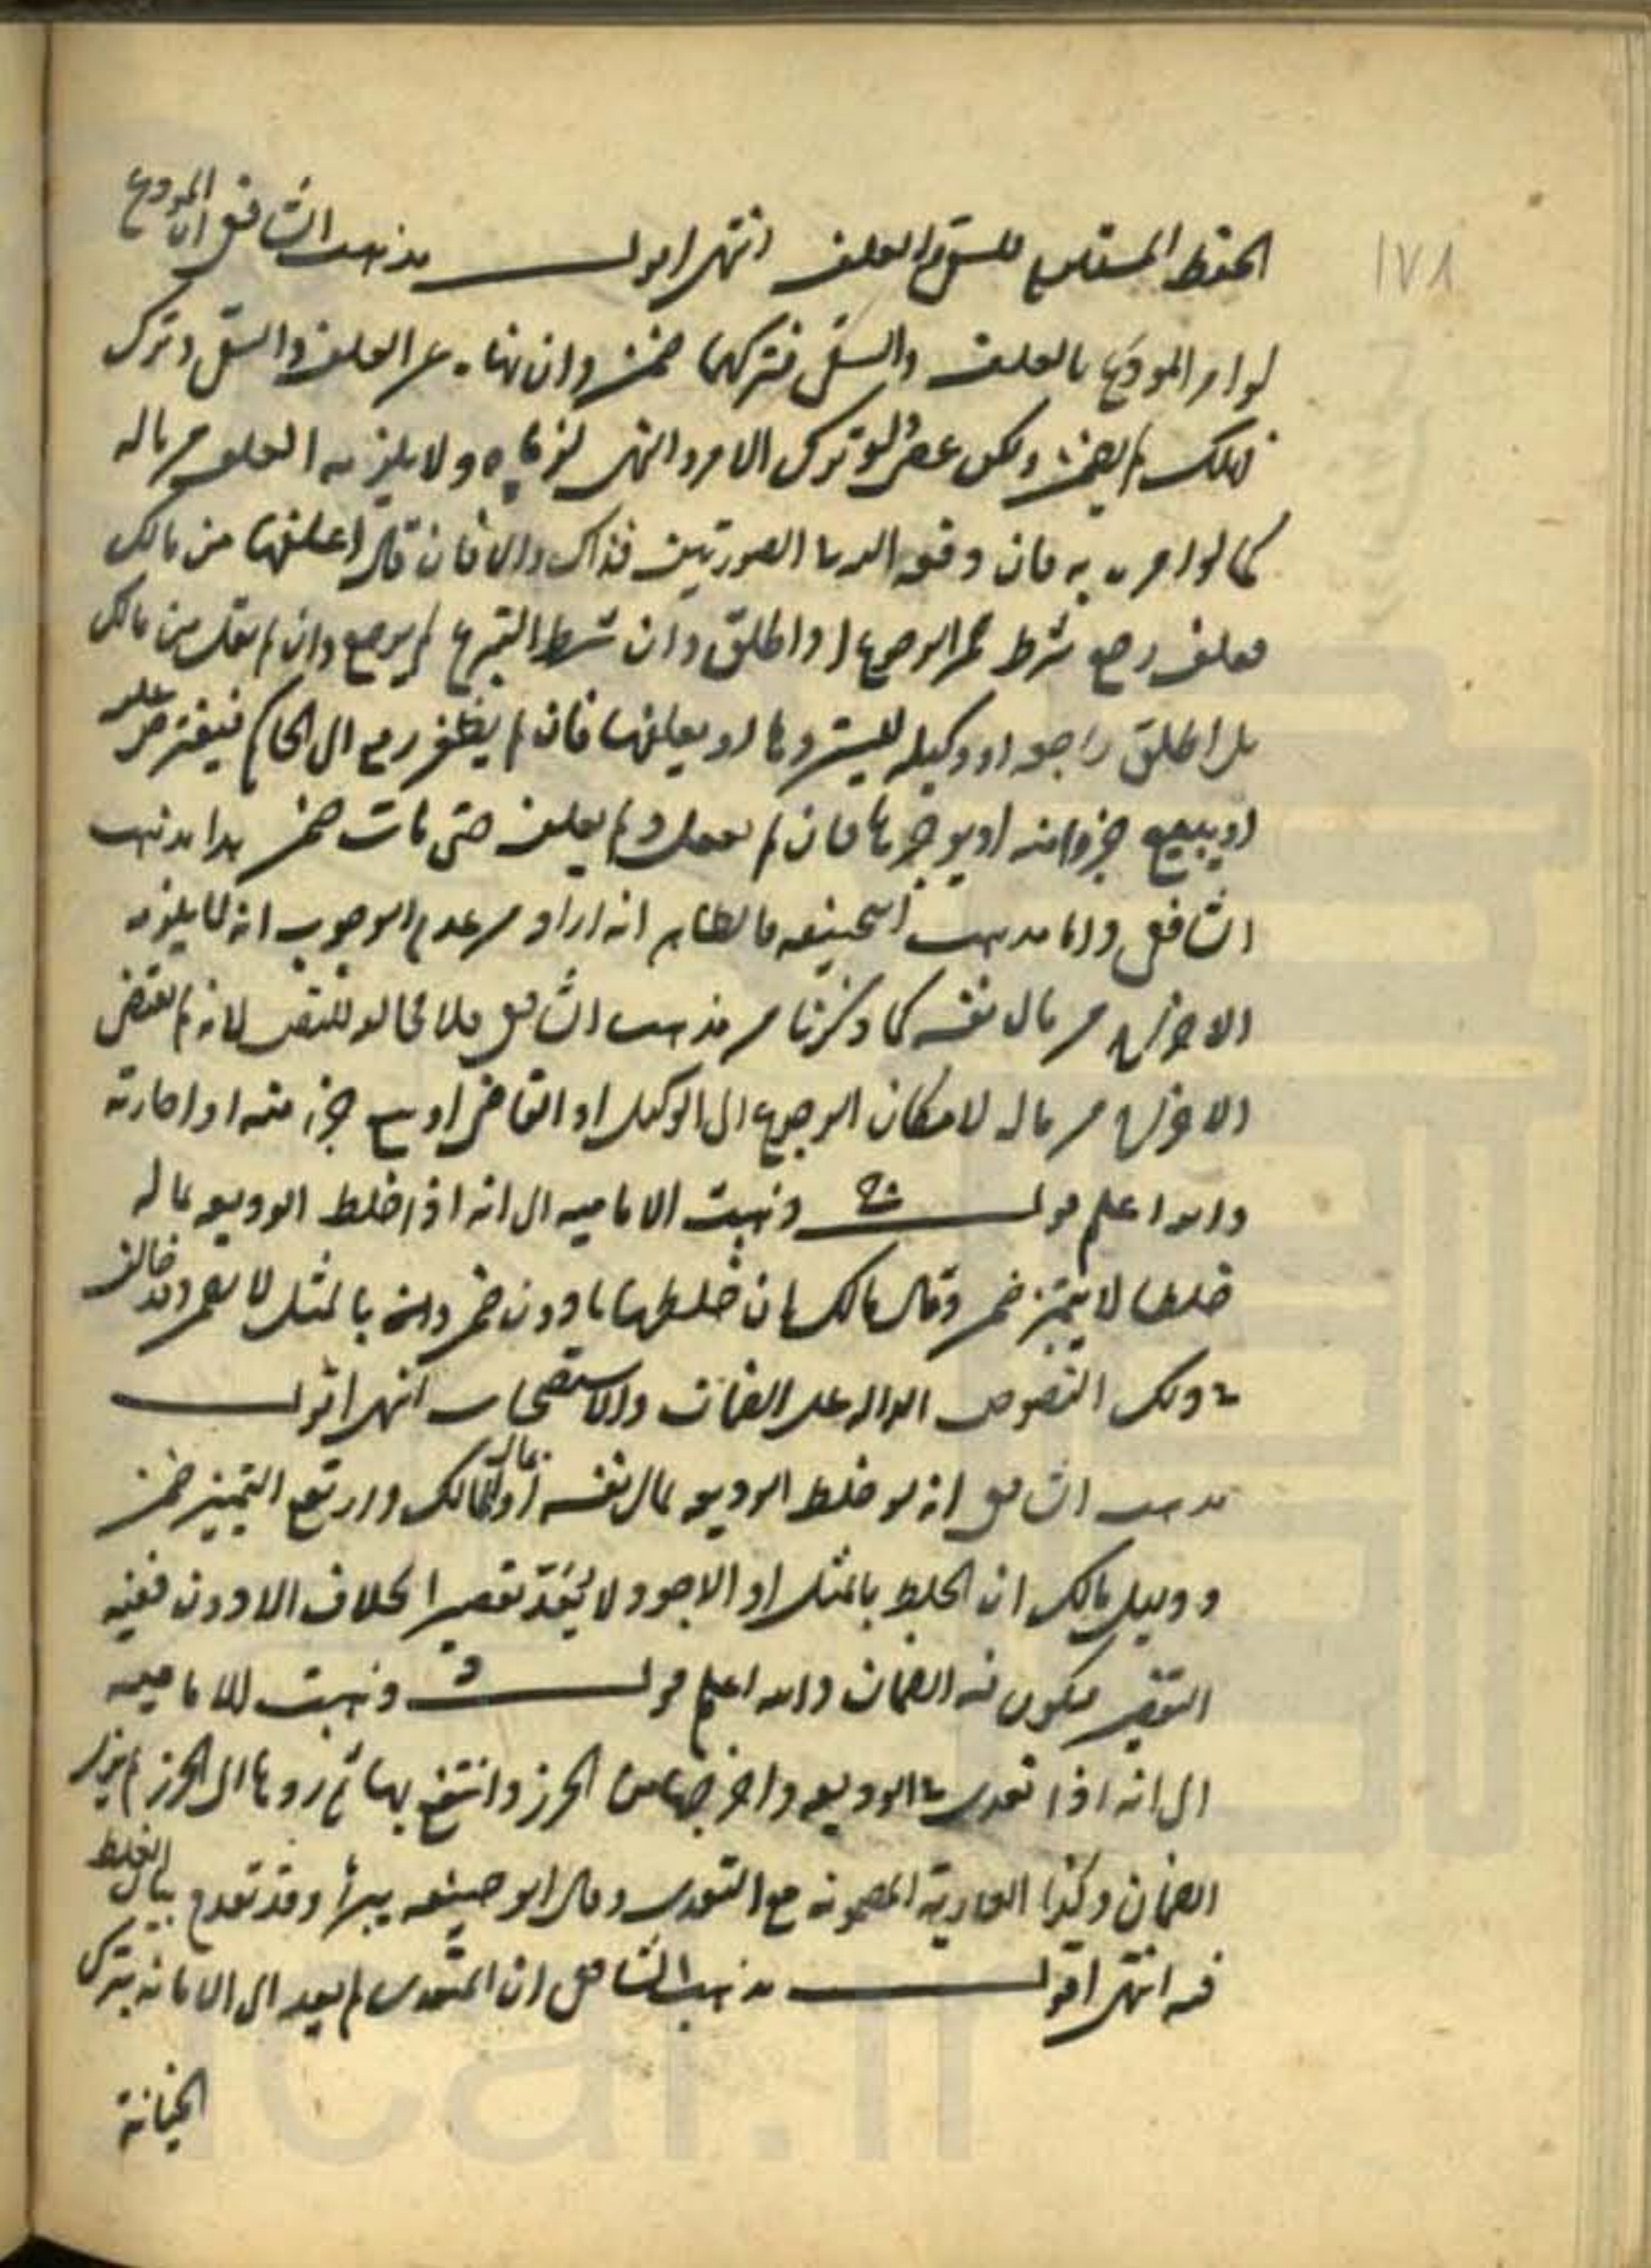 ١٧٨
الحفظ المستلزم للسقي والعلف انتهى اقول مذهب الشافعي ان المودع
لو امر المودع بالعلف والسقي فتركهما ضمن وان نهاه عن العلف والسقي وترك
فهلك لم يضمن ولكن عصى لو ترك الامر والنهي ولا يلزمه العلف من ماله
كما لو امره به فان دفعه اليه الصورتين فذاك والا فان قال اعلفها من مالك
فعلف رجع شرط الرجوع او اطلق وان شرط التبرع لم يرجع وان لم يقل من مالك
بل اطلق راجعه او وكيله ليستردها او يعلفها فان لم يظفر رفع الى الحاكم فيقترض عليه
او يبيع جزءا منه او يوجرها فان لم يفعل ولم يعلف حتى مات ضمن هذا مذهب
الشافعي واما مذهب ابي حنيفه فالظاهر انه اراد من عدم الوجوب انه لا يلزمه
الاخراج من مال نفسه كما ذكرنا من مذهب الشافعي فلا مخالفه للنص لانه لم يقتض
الاخراج من ماله لامكان الرجوع الى الوكيل او القاضي او بيع جزء منه او اجارته
والله اعلم قوله ذهبت الاماميه الى انه اذا خلط الوديعه بماله
خلطا لا يتميز ضمن وقال مالك ان خلطها بادون ضمن وان بالمثل لا يضمن وقد خالف
في ذلك النصوص الداله على الضمان والاستصحاب انتهى اقول
مذهب الشافعي انه لو خلط الوديعه بمال نفسه او بمال المالك وارتفع التمييز ضمن
ودليل مالك ان الخلط بالمثل او الاجود لا يعد تقصيرا بخلاف الادون ففيه
التقصير فيكون فيه الضمان والله اعلم قوله ذهبت الاماميه
الى انه اذا تعدى في الوديعه واخرجها من الحرز وانتفع بها ثم ردها الى الحرز لم يزل
الضمان وكذا العارية المضمونه مع التعدى وقال ابو حنيفه يبرأ وقد تقدم بيان الغلط
فيه انتهى اقول مذهب الشافعي ان المتعدى لم يعد الى الامانه بترك
الخيانة